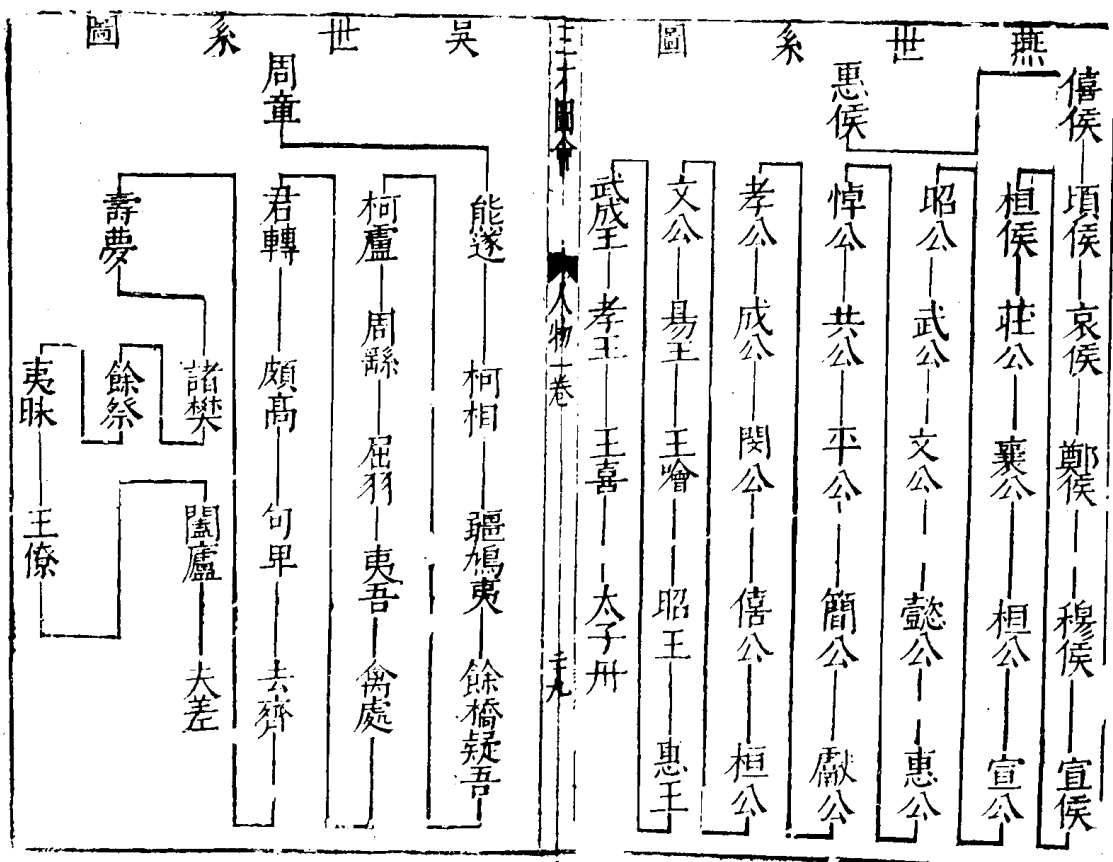 燕世系圖
惠侯
僖侯 頃侯 哀侯 鄭侯 穆侯 宣侯
桓侯 莊公 襄公 桓公 宣公
昭公 武公 文公 懿公 惠公
悼公 共公 平公 簡公 獻公
孝公 成公 閔公 僖公 桓公
文公 易王 王噲 昭王 惠王
武成王 孝王 王喜 太子丹
三才圖會 人物一卷 二九
吳世系圖
周章
熊遂 柯相 彊鳩夷 餘橋疑吾
柯盧 周繇 屈羽 夷吾 禽處
君轉 頗高 句卑 去齊
壽夢
諸樊 餘祭 夷昧
闔廬 夫差
王僚